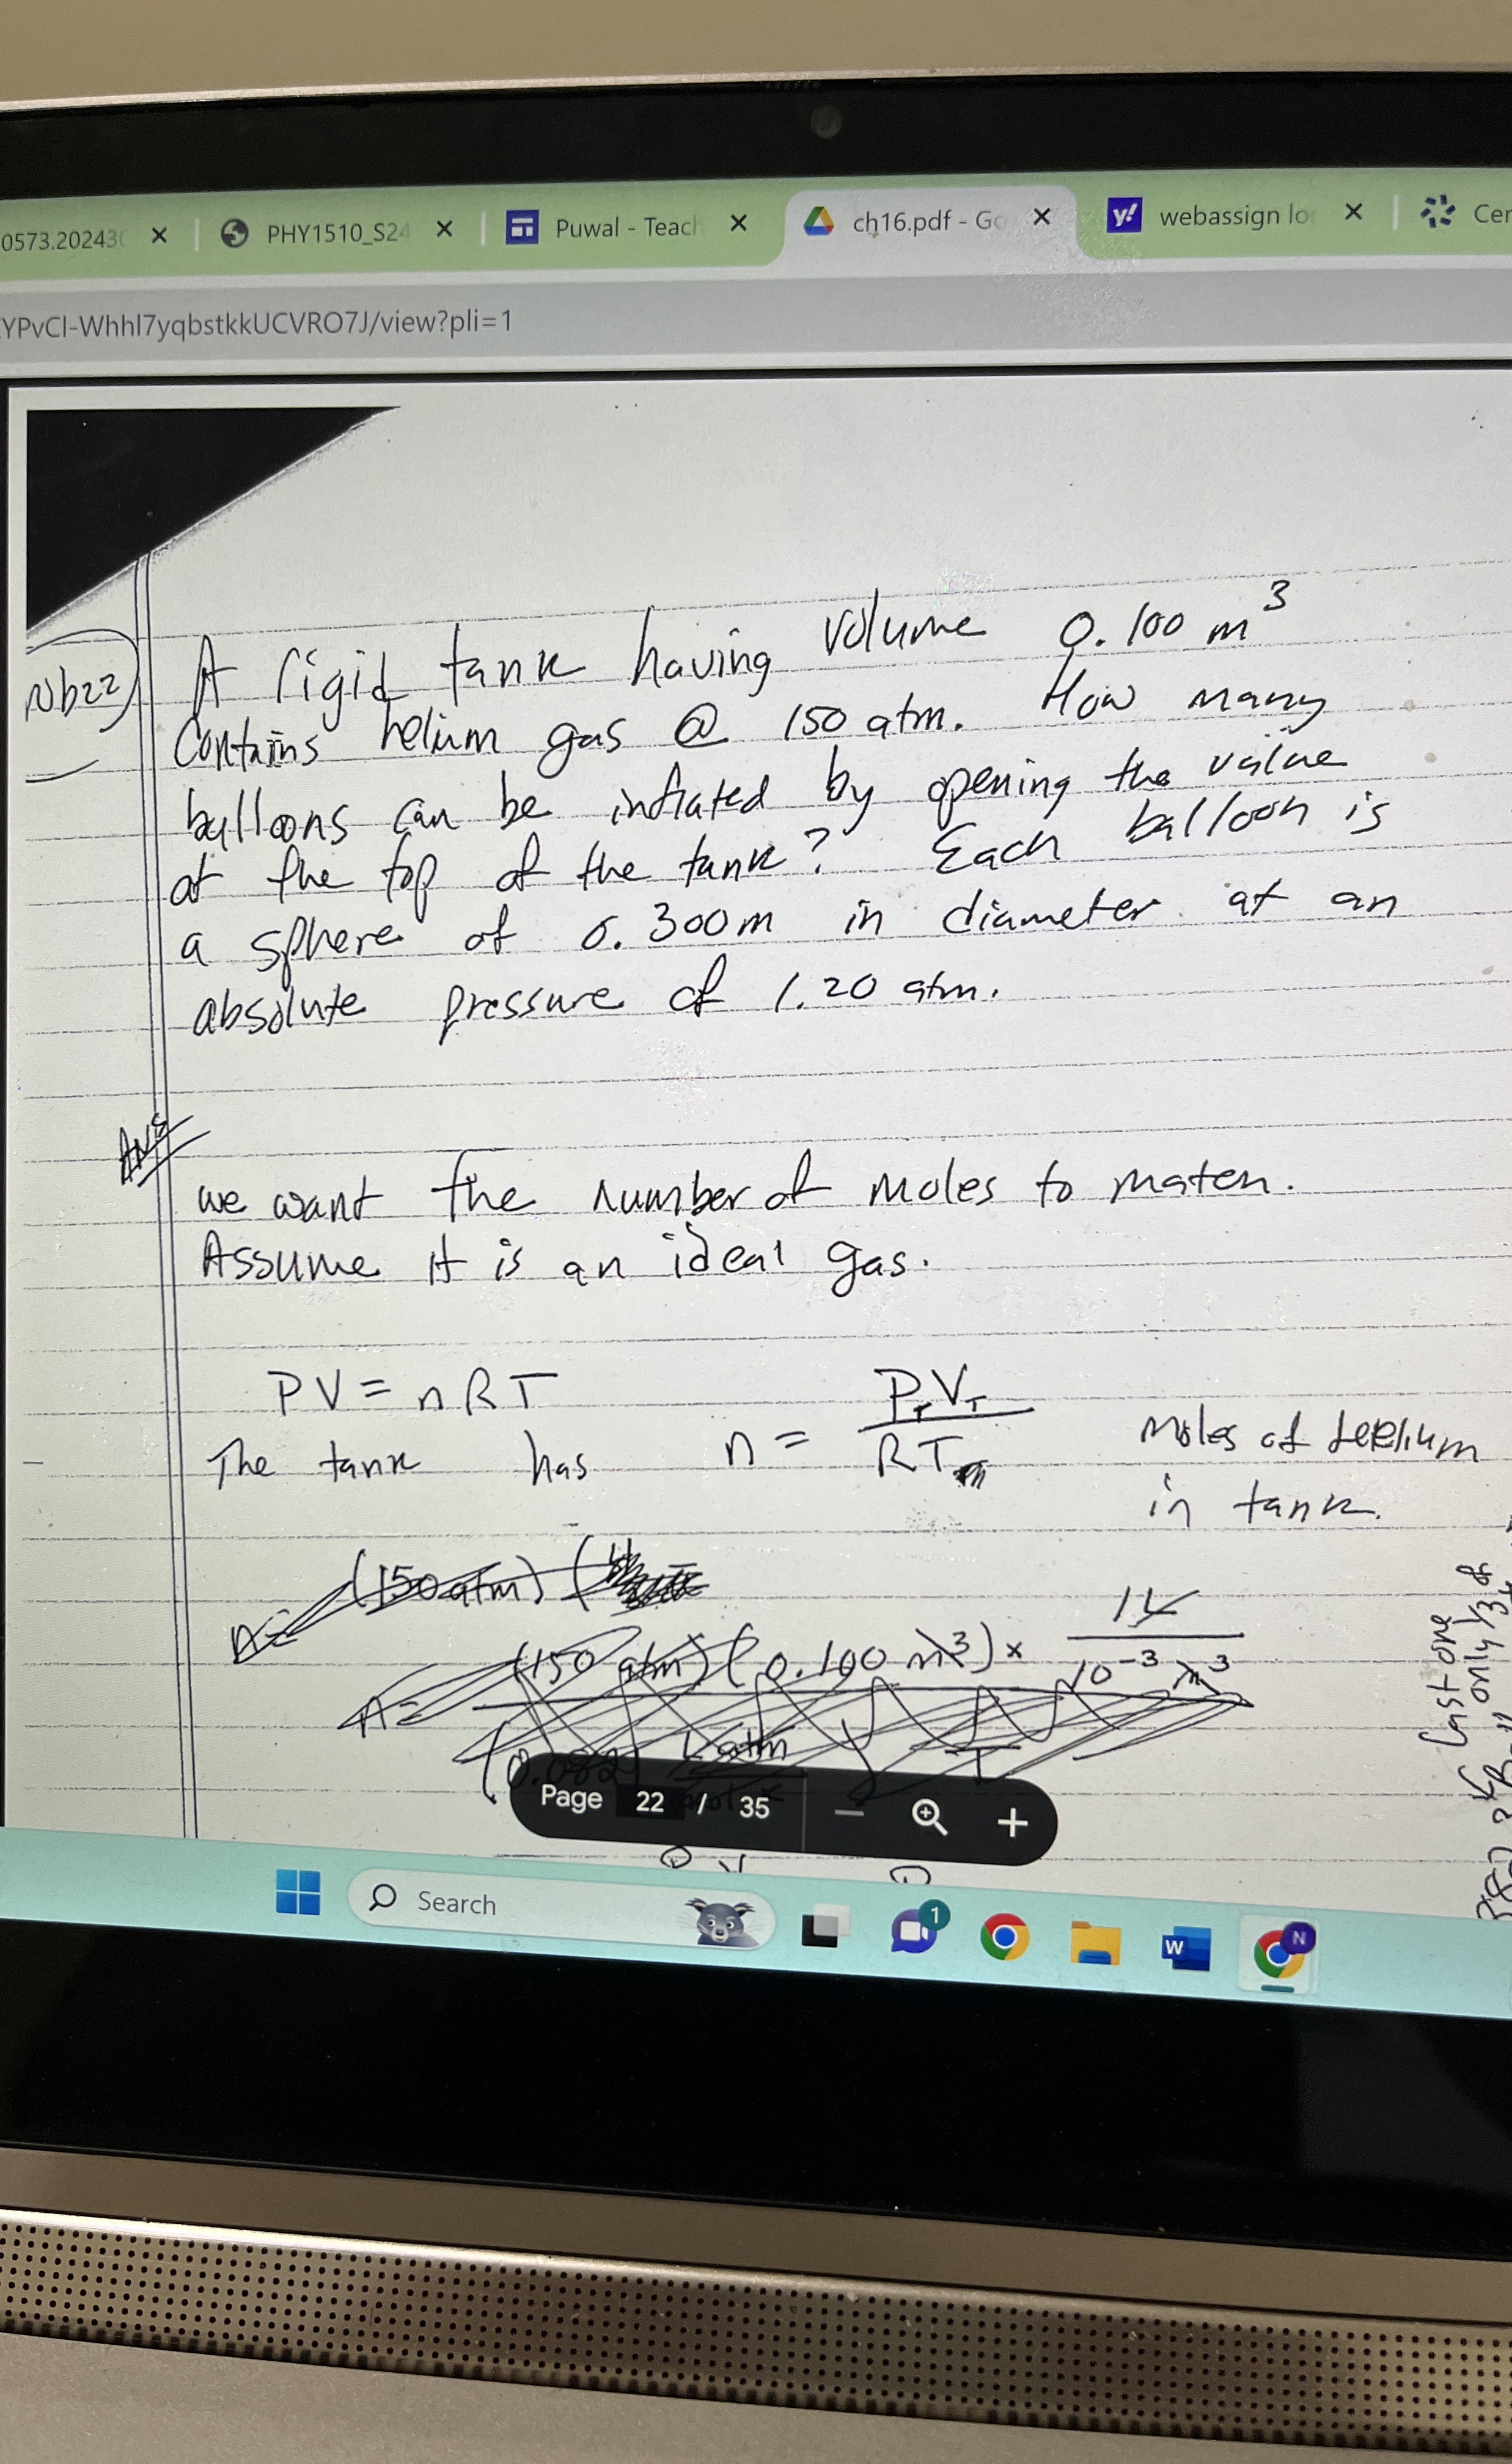 0573.20243
PHY1510_S24
Puwal - Teach
ch16.pdf - Go
webassign lo
Cer
YPvCl-Whhl7yqbstkkUCVRO7J/view?pli=1
A rigid tank having volume 0.100 m³
Contains helium gas @ 150 atm. How many
balloons can be inflated by opening the valve
at the top of the tank? Each balloon is
a sphere of 0.300m in diameter at an
absolute pressure of 1.20 atm.
Ans
we want the number of moles to match.
Assume it is an ideal gas.
PV = nRT
The tank has n = P_T V_T / RT moles of helium
in tank.
n = (150 atm) (
n = (150 atm) (0.100 m³) × 1L / 10⁻³ m³
(0.082) L atm
Last one
only 1/3 of
Page 22 / 35
Search
1
W
N